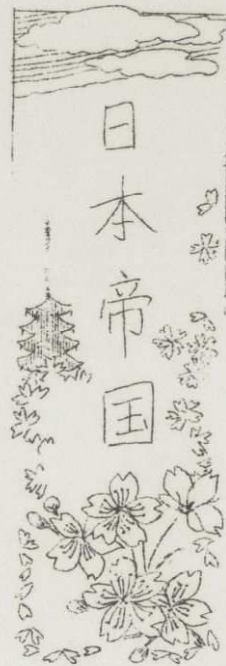 日本帝国